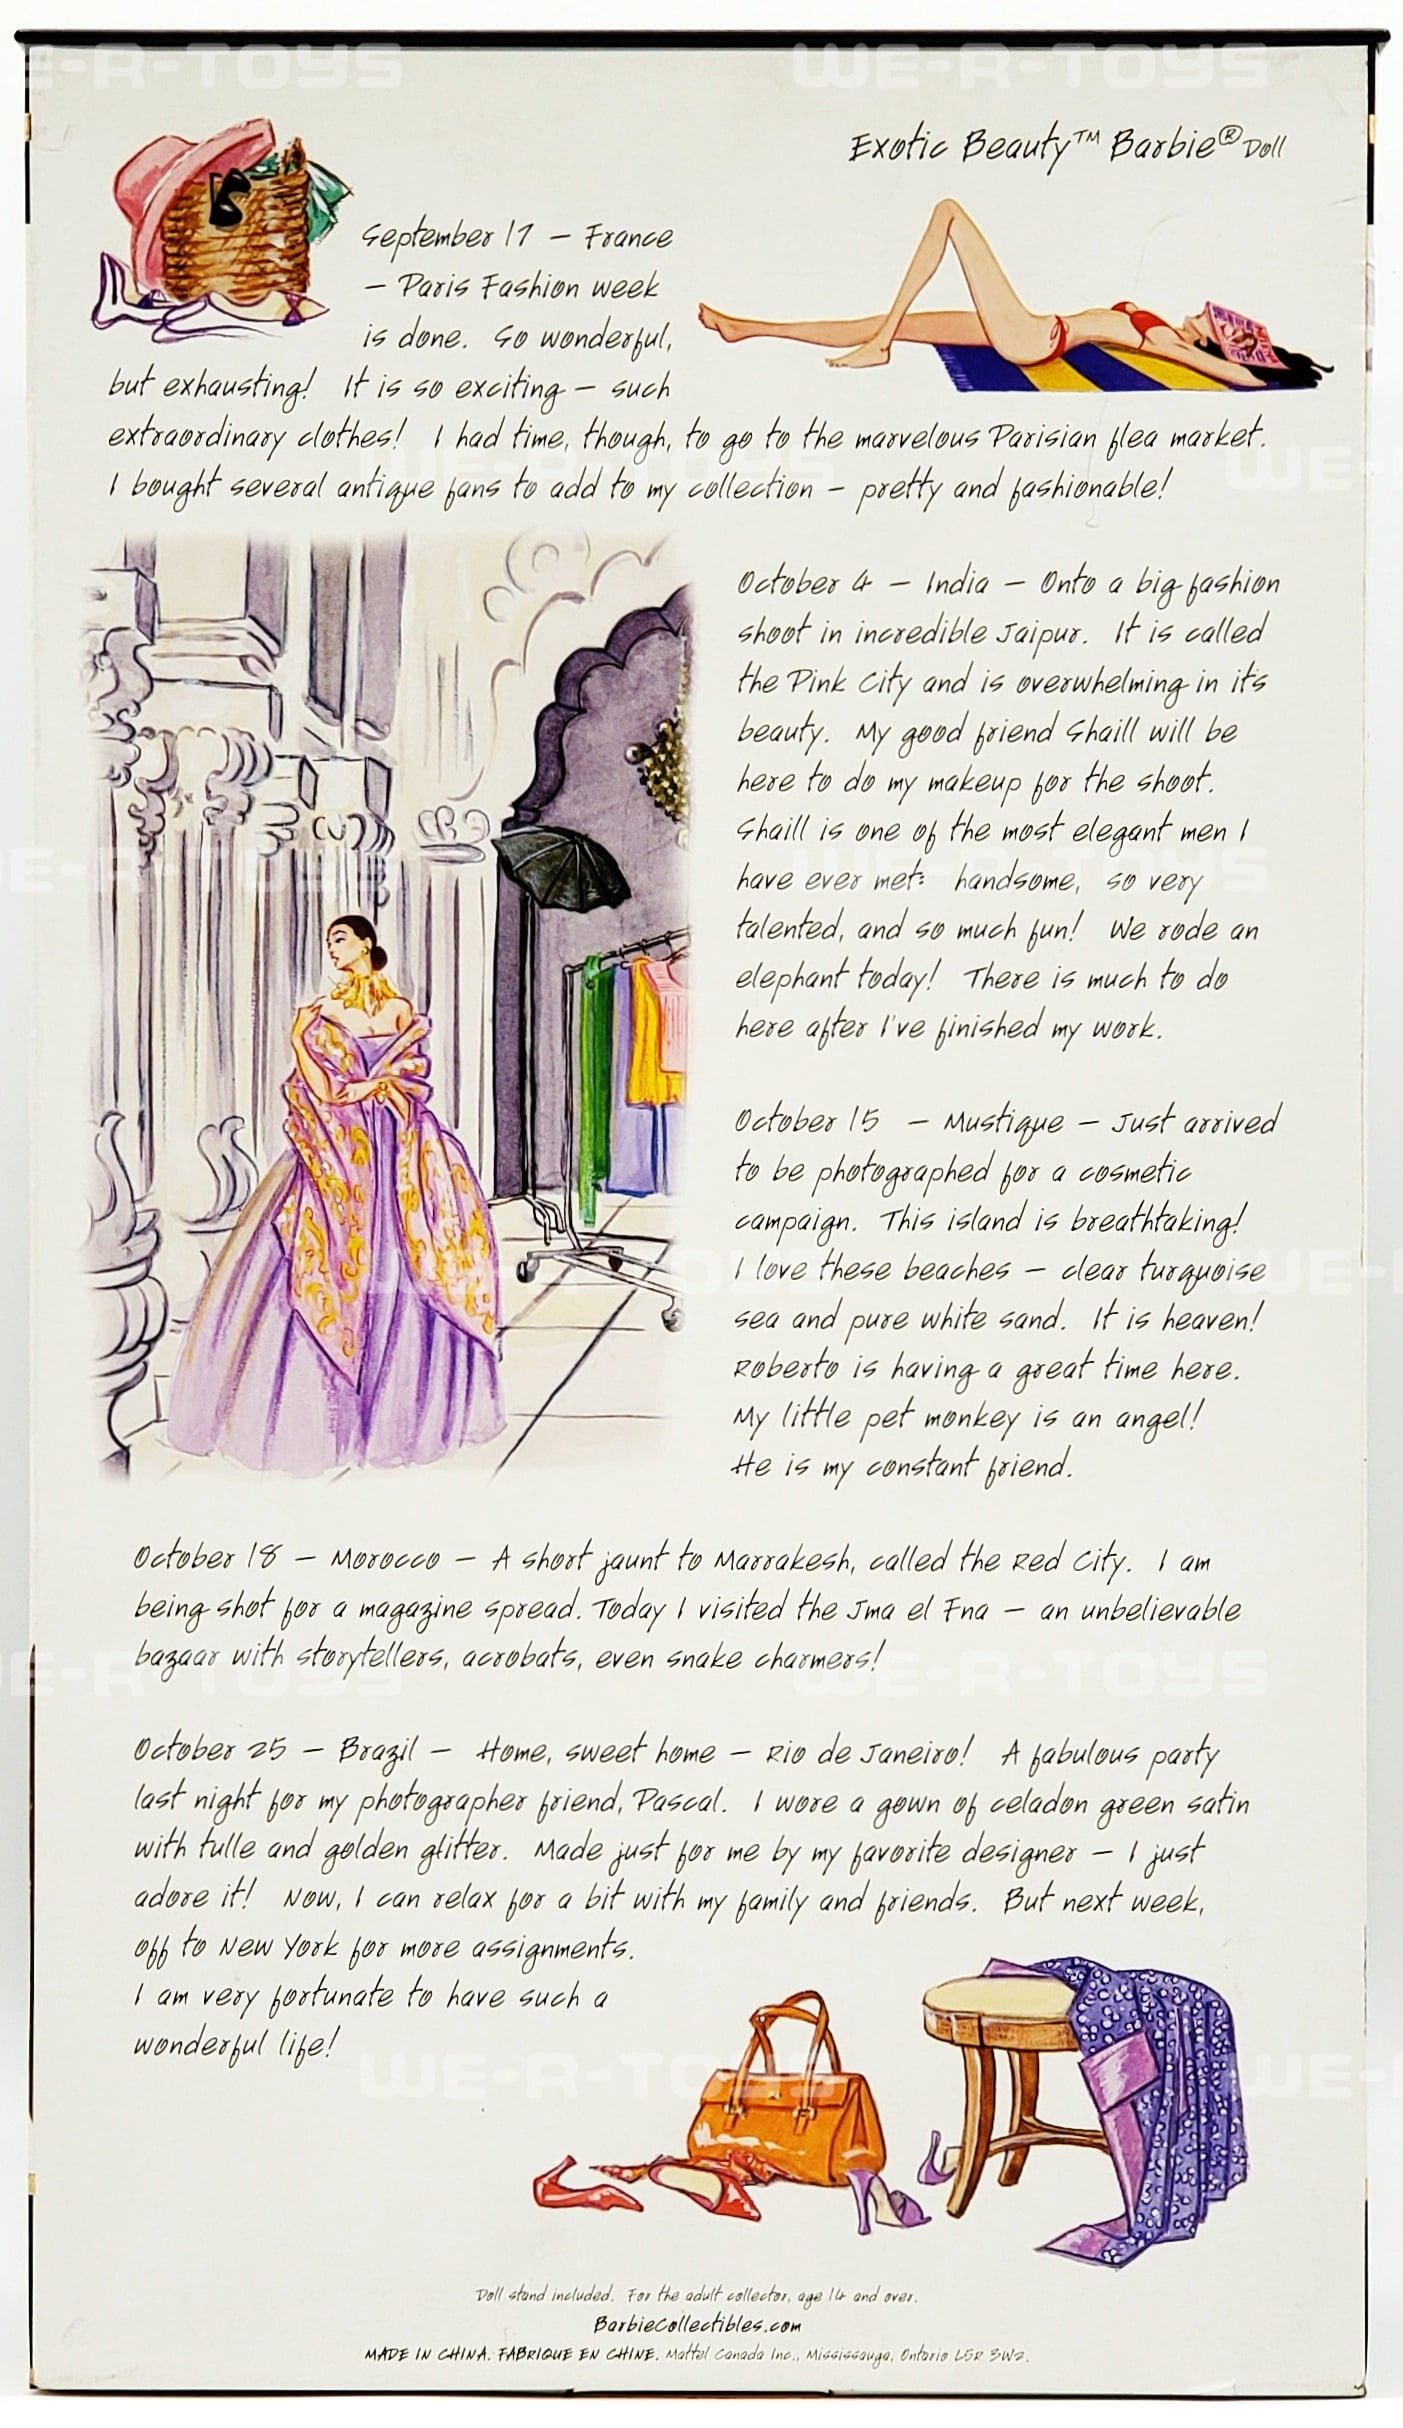 WE-R-TOYS
Exotic Beauty™ Barbie® Doll
September 17 – France
– Paris Fashion week
is done. So wonderful,
but exhausting! It is so exciting – such
extraordinary clothes! I had time, though, to go to the marvelous Parisian flea market.
I bought several antique fans to add to my collection – pretty and fashionable!
October 4 – India – Onto a big fashion
shoot in incredible Jaipur. It is called
the Pink City and is overwhelming in it's
beauty. My good friend Shaill will be
here to do my makeup for the shoot.
Shaill is one of the most elegant men I
have ever met: handsome, so very
talented, and so much fun! We rode an
elephant today! There is much to do
here after I've finished my work.
October 15 – Mustique – Just arrived
to be photographed for a cosmetic
campaign. This island is breathtaking!
I love these beaches – clear turquoise
sea and pure white sand. It is heaven!
Roberto is having a great time here.
My little pet monkey is an angel!
He is my constant friend.
October 18 – Morocco – A short jaunt to Marrakesh, called the Red City. I am
being shot for a magazine spread. Today I visited the Jma el Fna – an unbelievable
bazaar with storytellers, acrobats, even snake charmers!
October 25 – Brazil – Home, sweet home – Rio de Janeiro! A fabulous party
last night for my photographer friend, Pascal. I wore a gown of celadon green satin
with tulle and golden glitter. Made just for me by my favorite designer – I just
adore it! Now, I can relax for a bit with my family and friends. But next week,
off to New York for more assignments.
I am very fortunate to have such a
wonderful life!
Doll stand included. For the adult collector, age 14 and over.
BarbieCollectibles.com
MADE IN CHINA. FABRIQUE EN CHINE. Mattel Canada Inc., Mississauga, Ontario L5R 3W2.